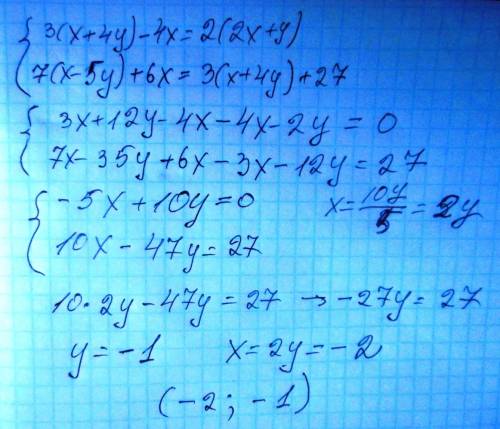 3(x+4y)-4x=2(2x+y)
7(x-5y)+6x=3(x+4y)+27
3x+12y-4x-4x-2y=0
7x-35y+6x-3x-12y=27
-5x+10y=0 x=10y/5=2y
10x-47y=27
10·2y-47y=27 → -27y=27
y=-1 x=2y=-2
(-2; -1)